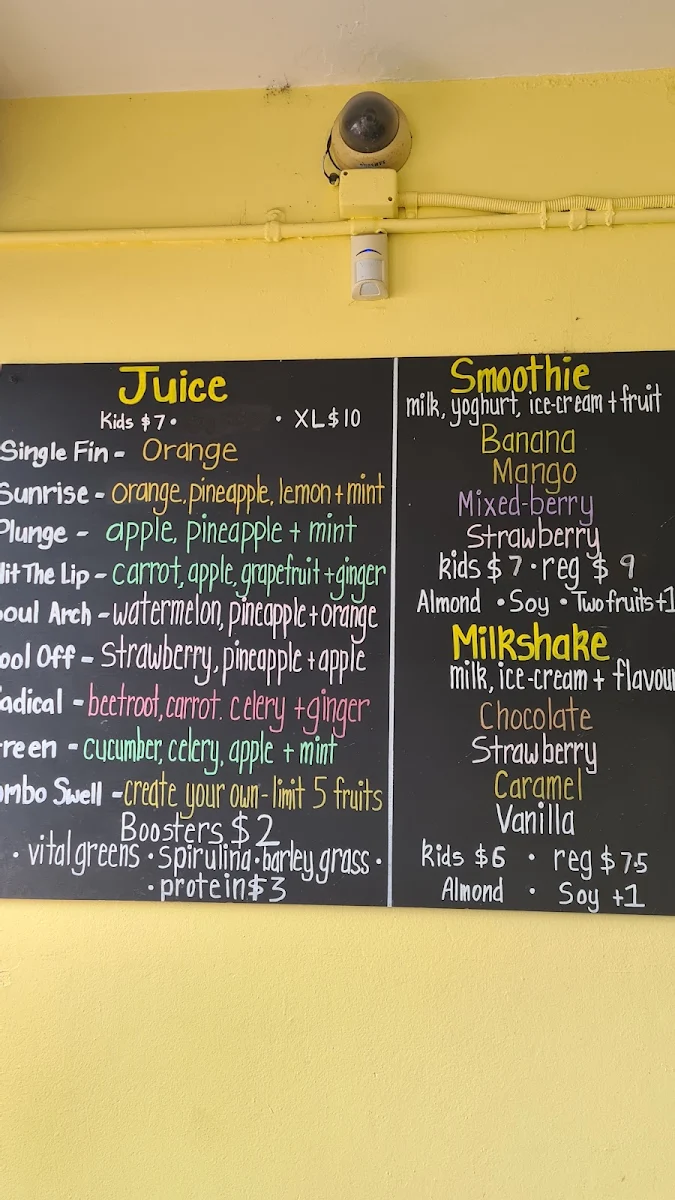 Juice
Kids $7 • • XL $10
Single Fin - Orange
Sunrise - orange, pineapple, lemon + mint
Plunge - apple, pineapple + mint
Hit The Lip - carrot, apple, grapefruit + ginger
oul Arch - watermelon, pineapple + orange
ool Off - Strawberry, pineapple + apple
adical - beetroot, carrot. celery + ginger
reen - cucumber, celery, apple + mint
ombo Swell - create your own - limit 5 fruits
Boosters $2
• vital greens • spirulina • barley grass •
• protein $3
Smoothie
milk, yoghurt, ice-cream + fruit
Banana
Mango
Mixed-berry
Strawberry
kids $7 • reg $9
Almond • Soy • Two fruits +1
Milkshake
milk, ice-cream + flavour
Chocolate
Strawberry
Caramel
Vanilla
kids $6 • reg $7.5
Almond • Soy +1